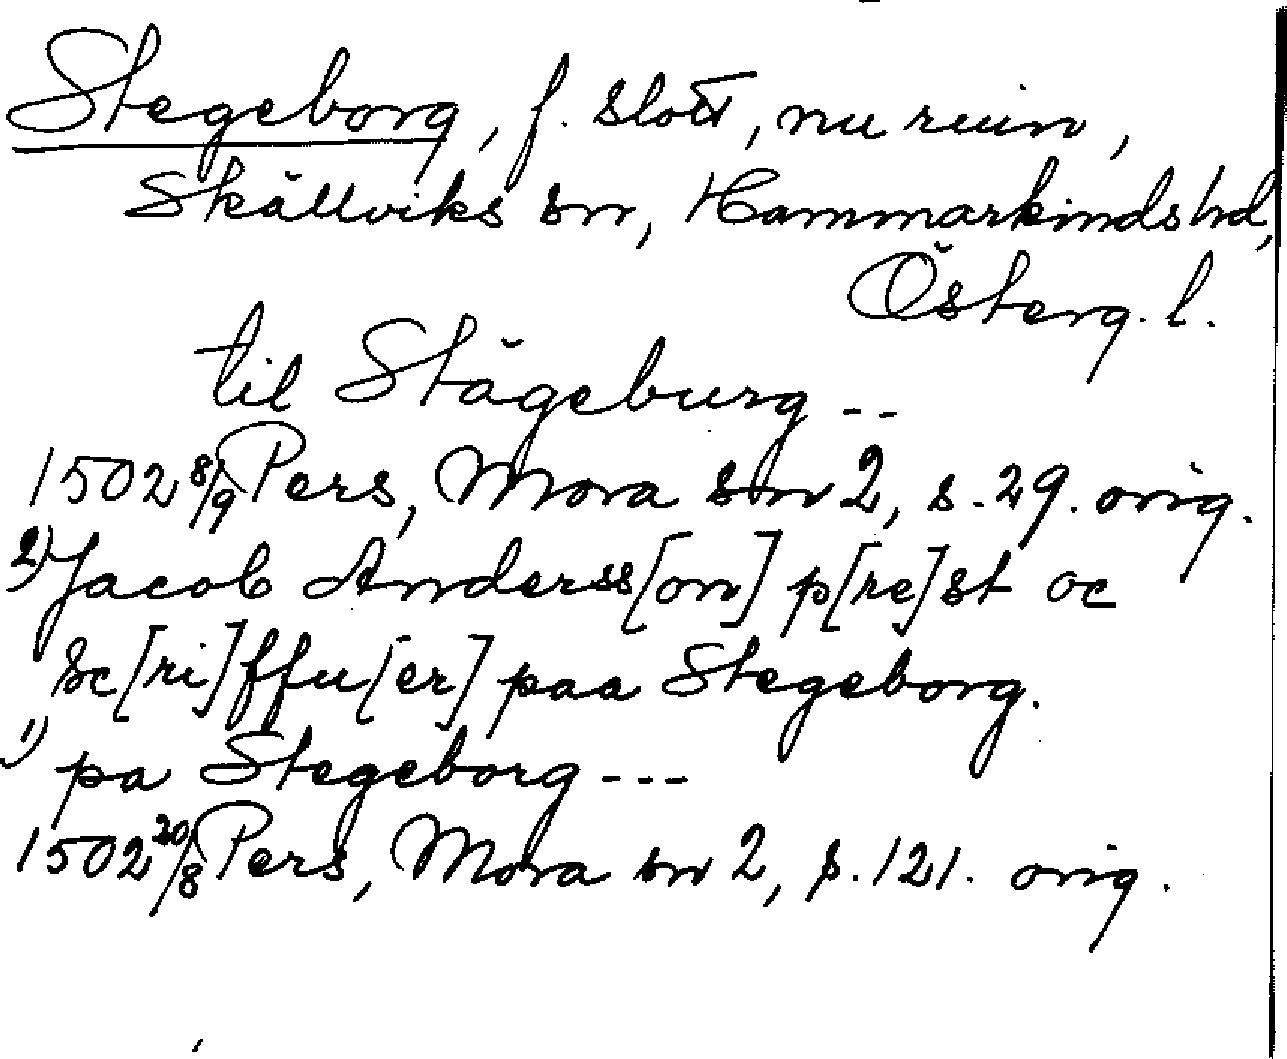 Stegeborg, f. slott, nu ruin,
Skällviks sn, Hammarkinds hd,
Österg. l.
til Stägeburg --
1502 8/9 Pers, Mora sn 2, s. 29. orig.
2) Jacob Anderss[on] p[re]st oc
sc[ri]ffu[er] paa Stegeborg.
1) pa Stegeborg ---
1502 20/8 Pers, Mora sn 2, s. 121. orig.